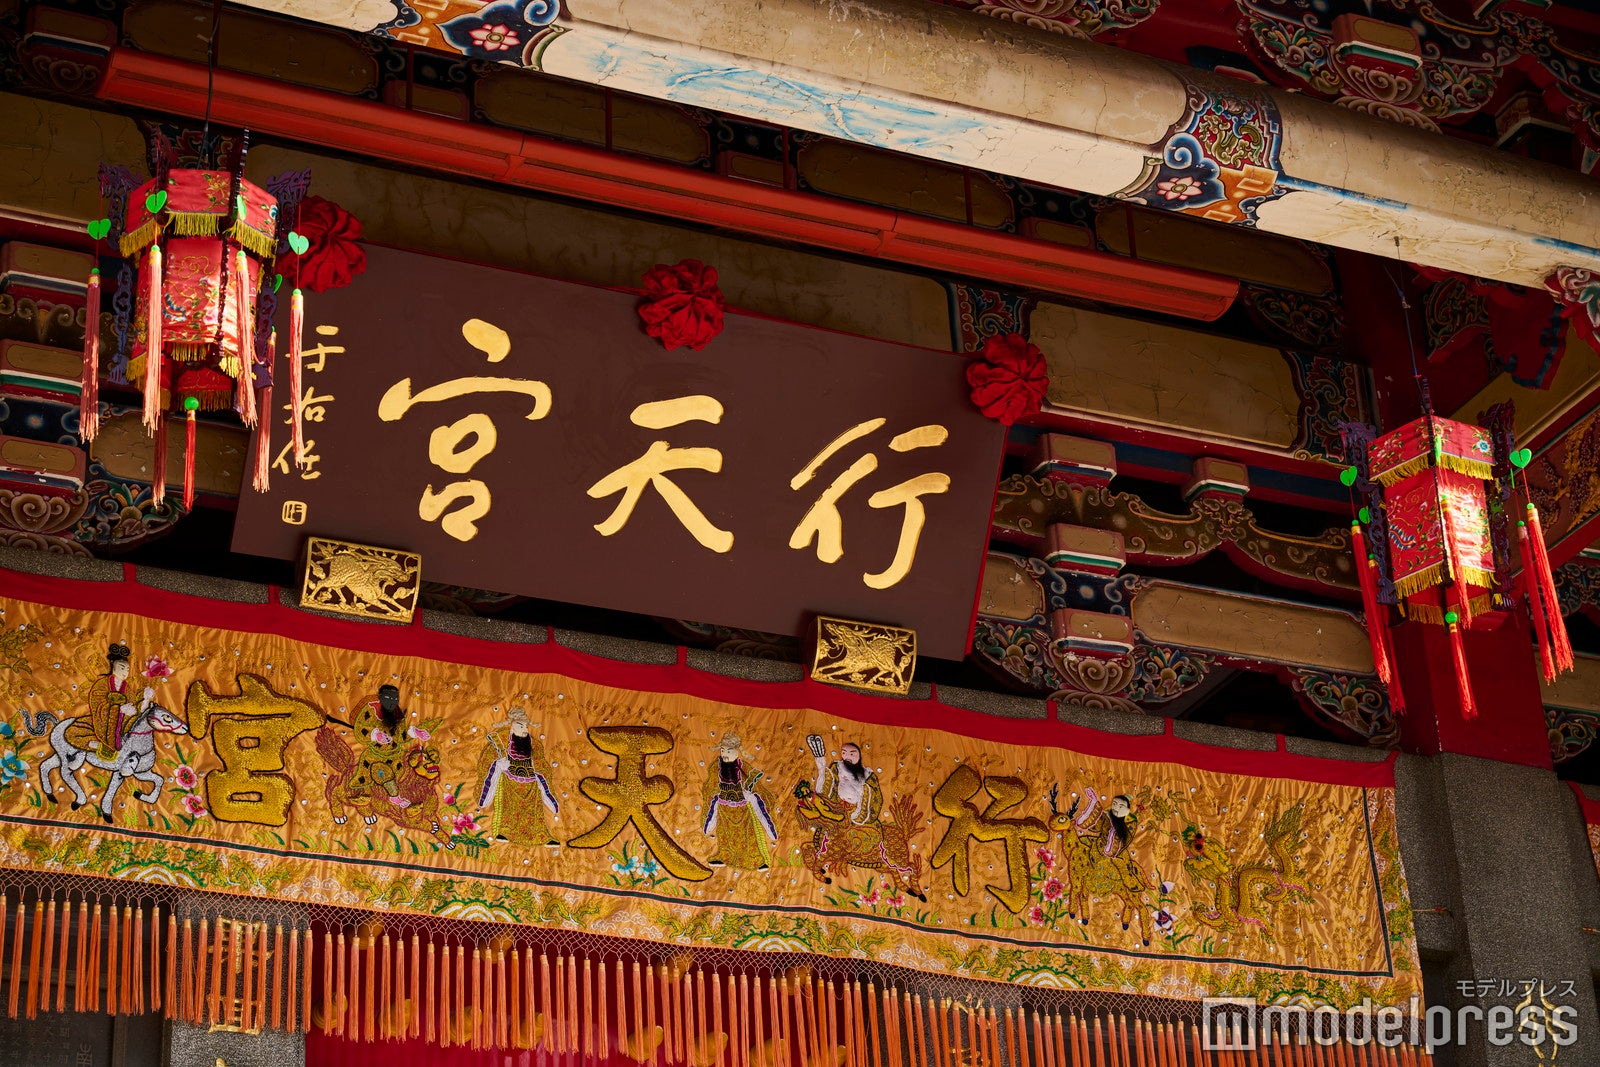 行天宮
于右任
行天宮
モデルプレス
modelpress